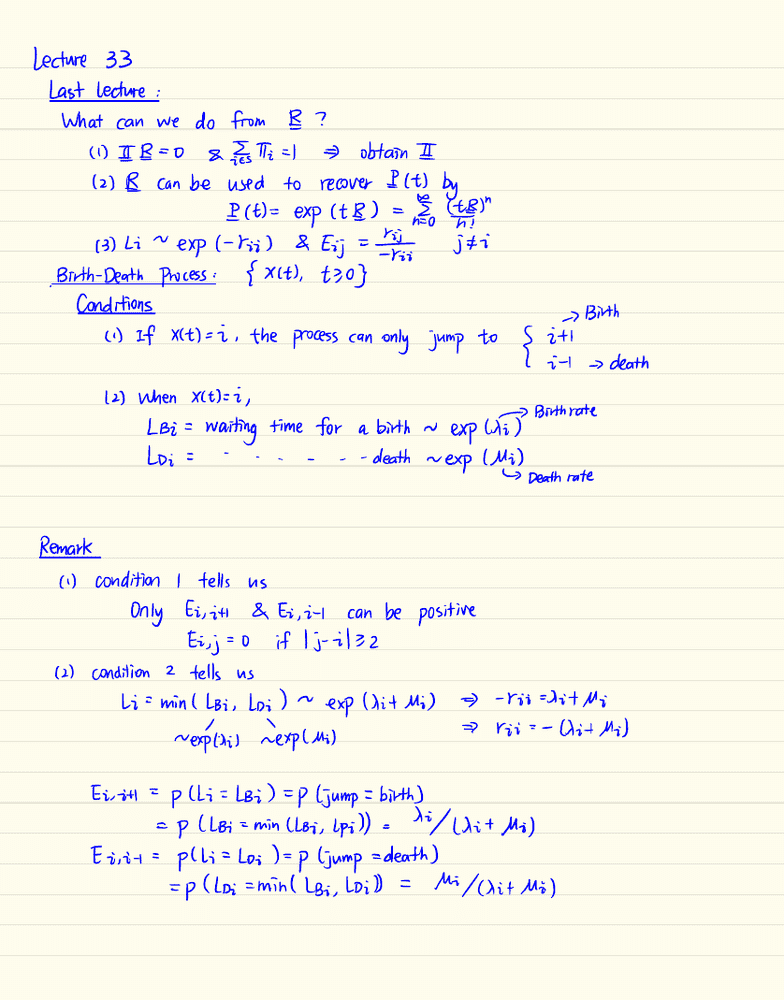 Lecture 33
Last lecture :
What can we do from R ?
(1) Π R = 0 & ∑_{i∈S} Π_i = 1 ⇒ obtain Π
(2) R can be used to recover P(t) by
P(t) = exp (t R) = ∑_{n=0}^{∞} (tR)^n / n!
(3) Li ~ exp (-r_ii) & E_ij = r_ij / -r_ii j≠i
Birth-Death Process: { X(t), t≥0}
Conditions
→ Birth
(1) If X(t)=i, the process can only jump to { i+1
i-1 → death
(2) When X(t)=i,
→ Birth rate
L_Bi = waiting time for a birth ~ exp(λi)
L_Di = - - - - - - death ~ exp (μi)
→ Death rate
Remark
(1) condition 1 tells us
Only E_i,i+1 & E_i,i-1 can be positive
E_i,j = 0 if |j-i| ≥ 2
(2) condition 2 tells us
Li = min( L_Bi, L_Di ) ~ exp (λi + μi) ⇒ -r_ii = λi + μi
~exp(λi) ~exp(μi) ⇒ r_ii = - (λi + μi)
E_i,i+1 = p (Li = L_Bi) = p (jump = birth)
= p (L_Bi = min (L_Bi, L_Di)) = λi / (λi + μi)
E_i,i-1 = p(Li = L_Di) = p (jump = death)
= p (L_Di = min( L_Bi, L_Di)) = μi / (λi + μi)